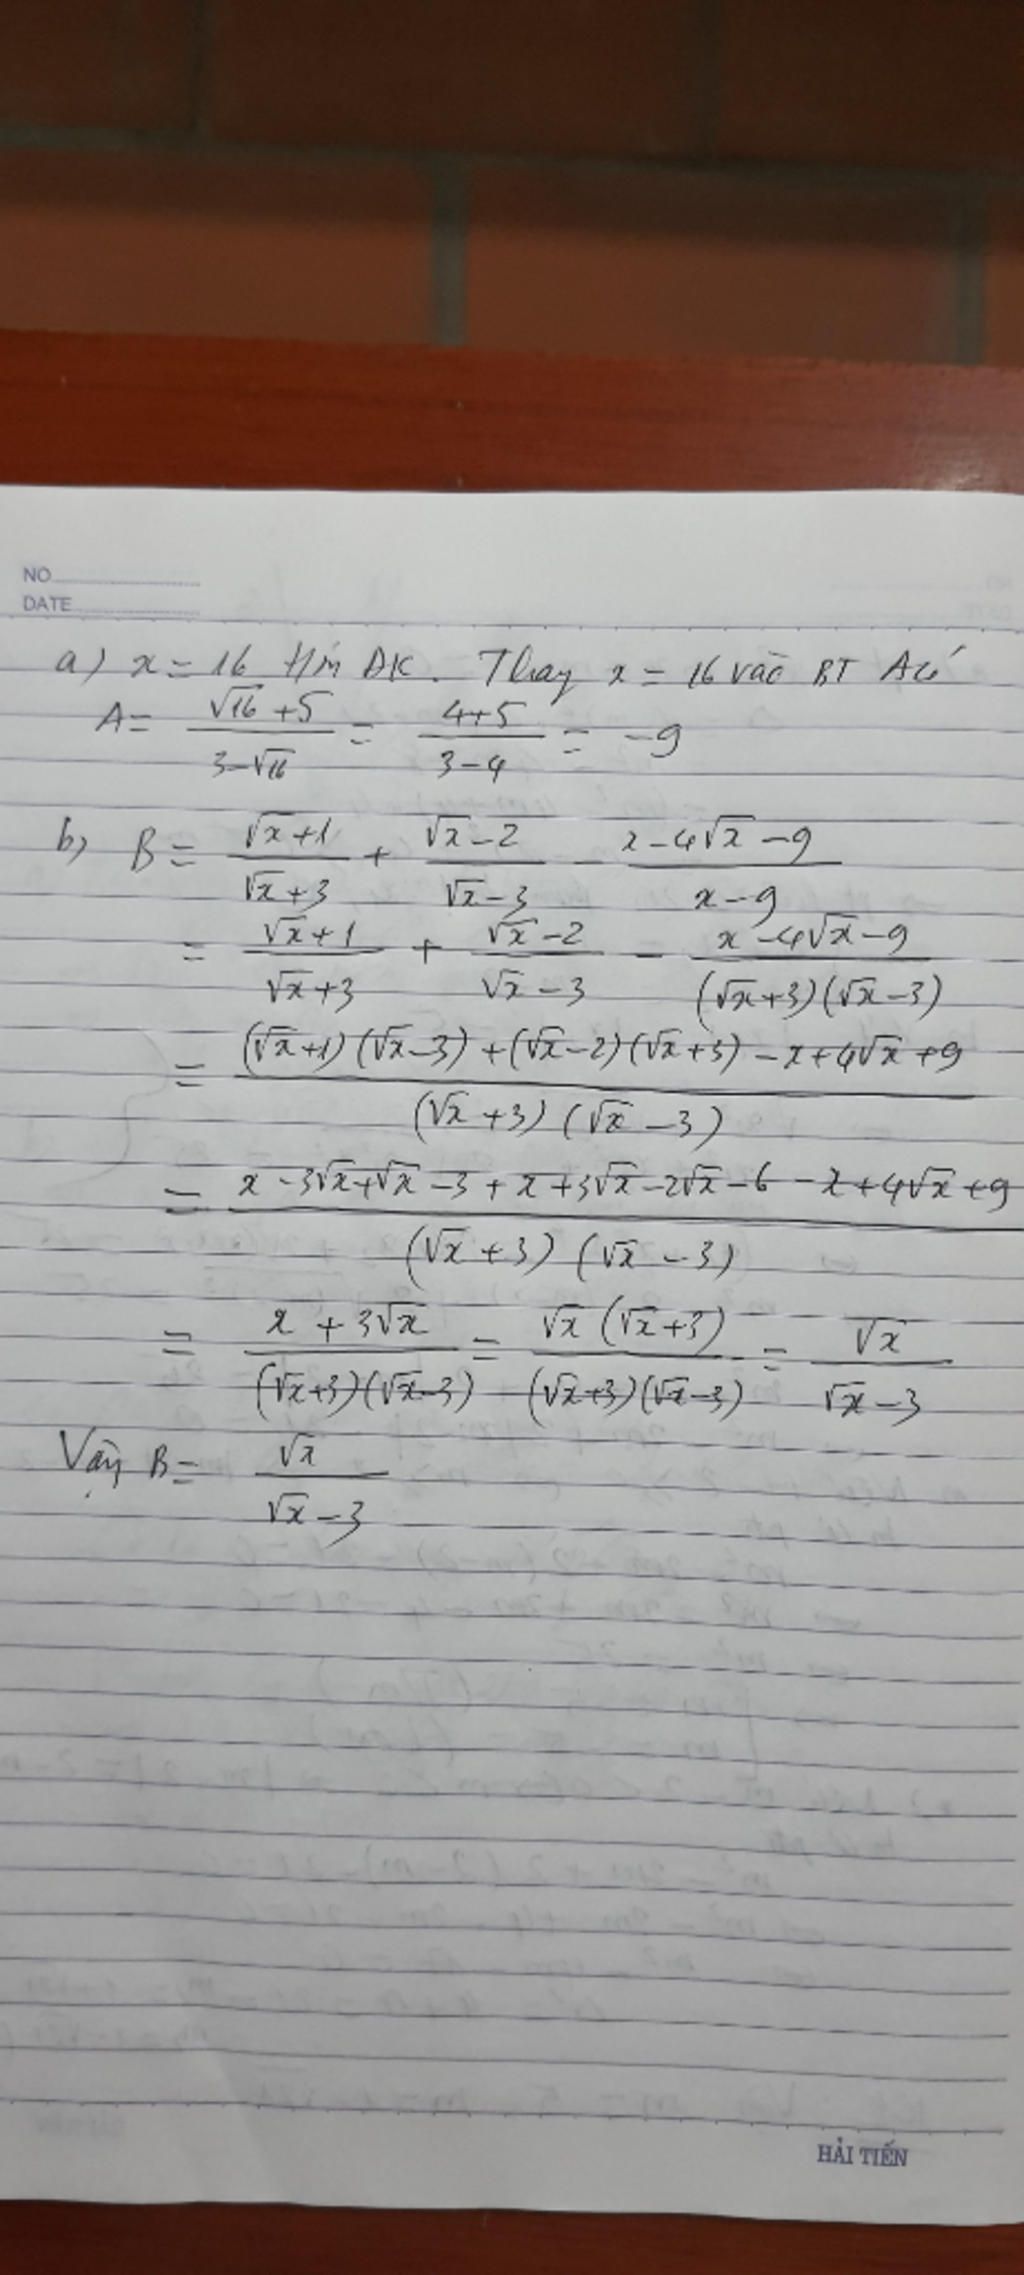 NO
DATE
a) x = 16 t/m ĐK. Thay x = 16 vào BT A có
A = (√16 + 5)/(3 - √16) = (4+5)/(3-4) = -9
b) B = (√x + 1)/(√x + 3) + (√x - 2)/(√x - 3) - (x - 4√x - 9)/(x - 9)
= (√x + 1)/(√x + 3) + (√x - 2)/(√x - 3) - (x - 4√x - 9)/((√x + 3)(√x - 3))
= ((√x + 1)(√x - 3) + (√x - 2)(√x + 3) - x + 4√x + 9)/((√x + 3)(√x - 3))
= (x - 3√x + √x - 3 + x + 3√x - 2√x - 6 - x + 4√x + 9)/((√x + 3)(√x - 3))
= (x + 3√x)/((√x + 3)(√x - 3)) = (√x(√x + 3))/((√x + 3)(√x - 3)) = √x/(√x - 3)
Vậy B = √x/(√x - 3)
HẢI TIẾN